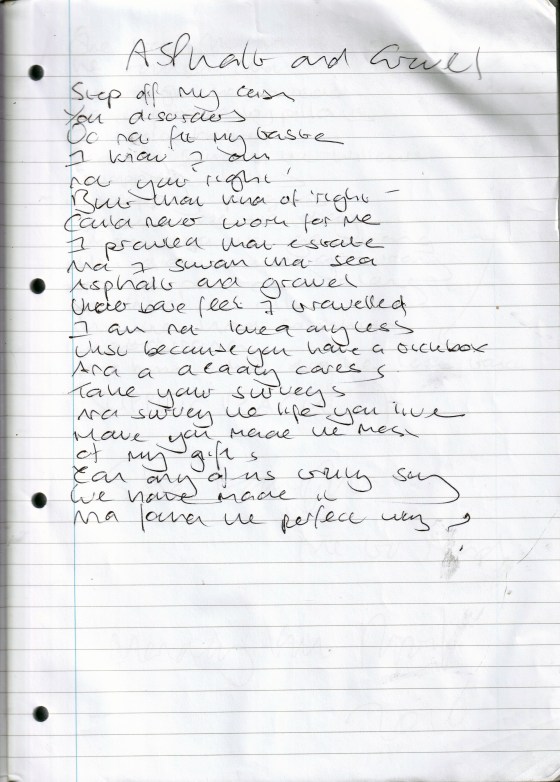 Asphalt and Gravel
Step off my
You disorders
Do not fit my taste
I know I am
not your 'right'
But that kind of 'right'
Could never work for me
I prowled that estate
And I swam that sea
Asphalt and gravel
Under bare feet I travelled
I am not loved any less
Just because you have a
And a daddy cares
Take your surveys
And survey the life you live
Have you made the most
of my gifts
Can any of us truly say
We have made it
And found the perfect way ?